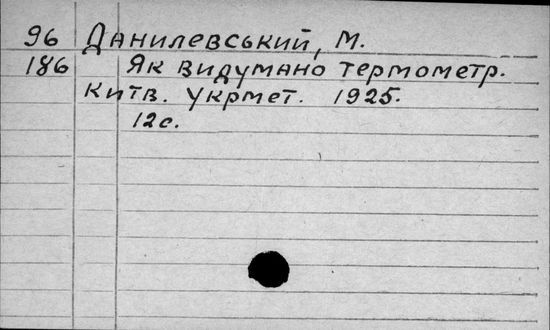 96 Данилевський, М.
186 Як видумано термометр.
Китв. Укрмет. 1925.
12с.